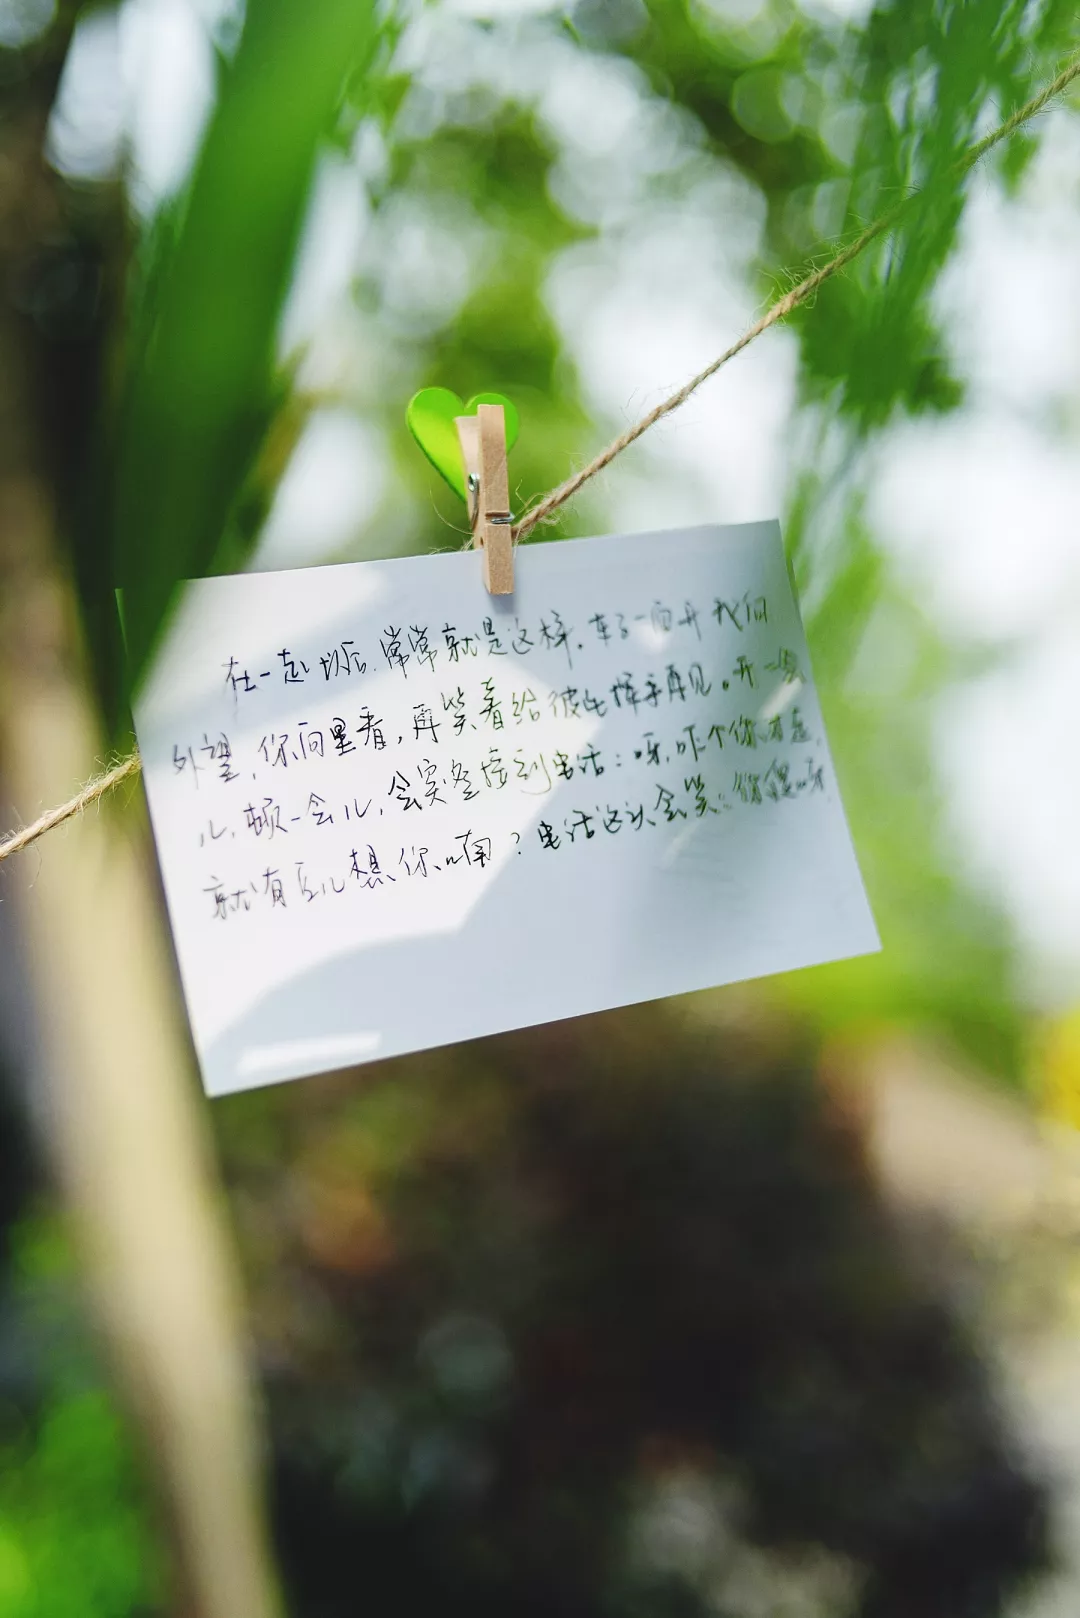 在一起以后，常常就是这样。车子一启开我们
外望，你向里看，再笑着给彼此挥手再见。开一会
儿，顿一会儿，会突然接到电话：呀，咋个你才走，
就有点儿想你呐？电话这头会笑：